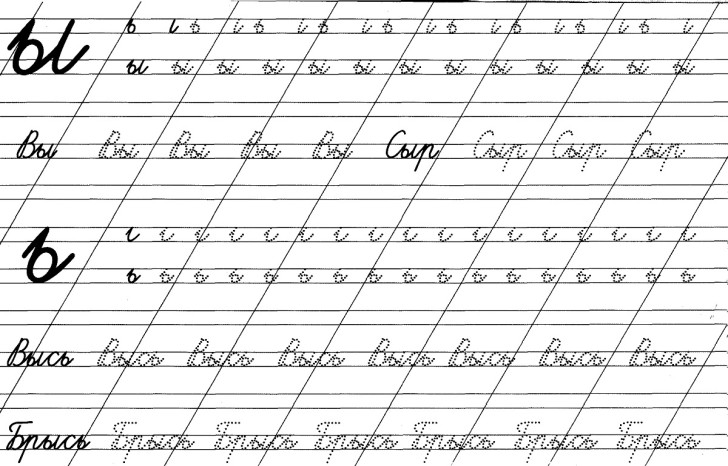 ы
ь ι ь ι ь ι ь ι ь ι ь ι ь ι ь ι ь ι
ы ы ы ы ы ы ы ы ы ы ы ы ы
Вы Вы Вы Вы Вы Сыр Сыр Сыр Сыр
ь
ι ι ι ι ι ι ι ι ι ι ι ι ι ι ι ι ι
ь ь ь ь ь ь ь ь ь ь ь ь ь ь ь ь ь
Высь Высь Высь Высь Высь Высь Высь Высь
Брысь Брысь Брысь Брысь Брысь Брысь Брысь